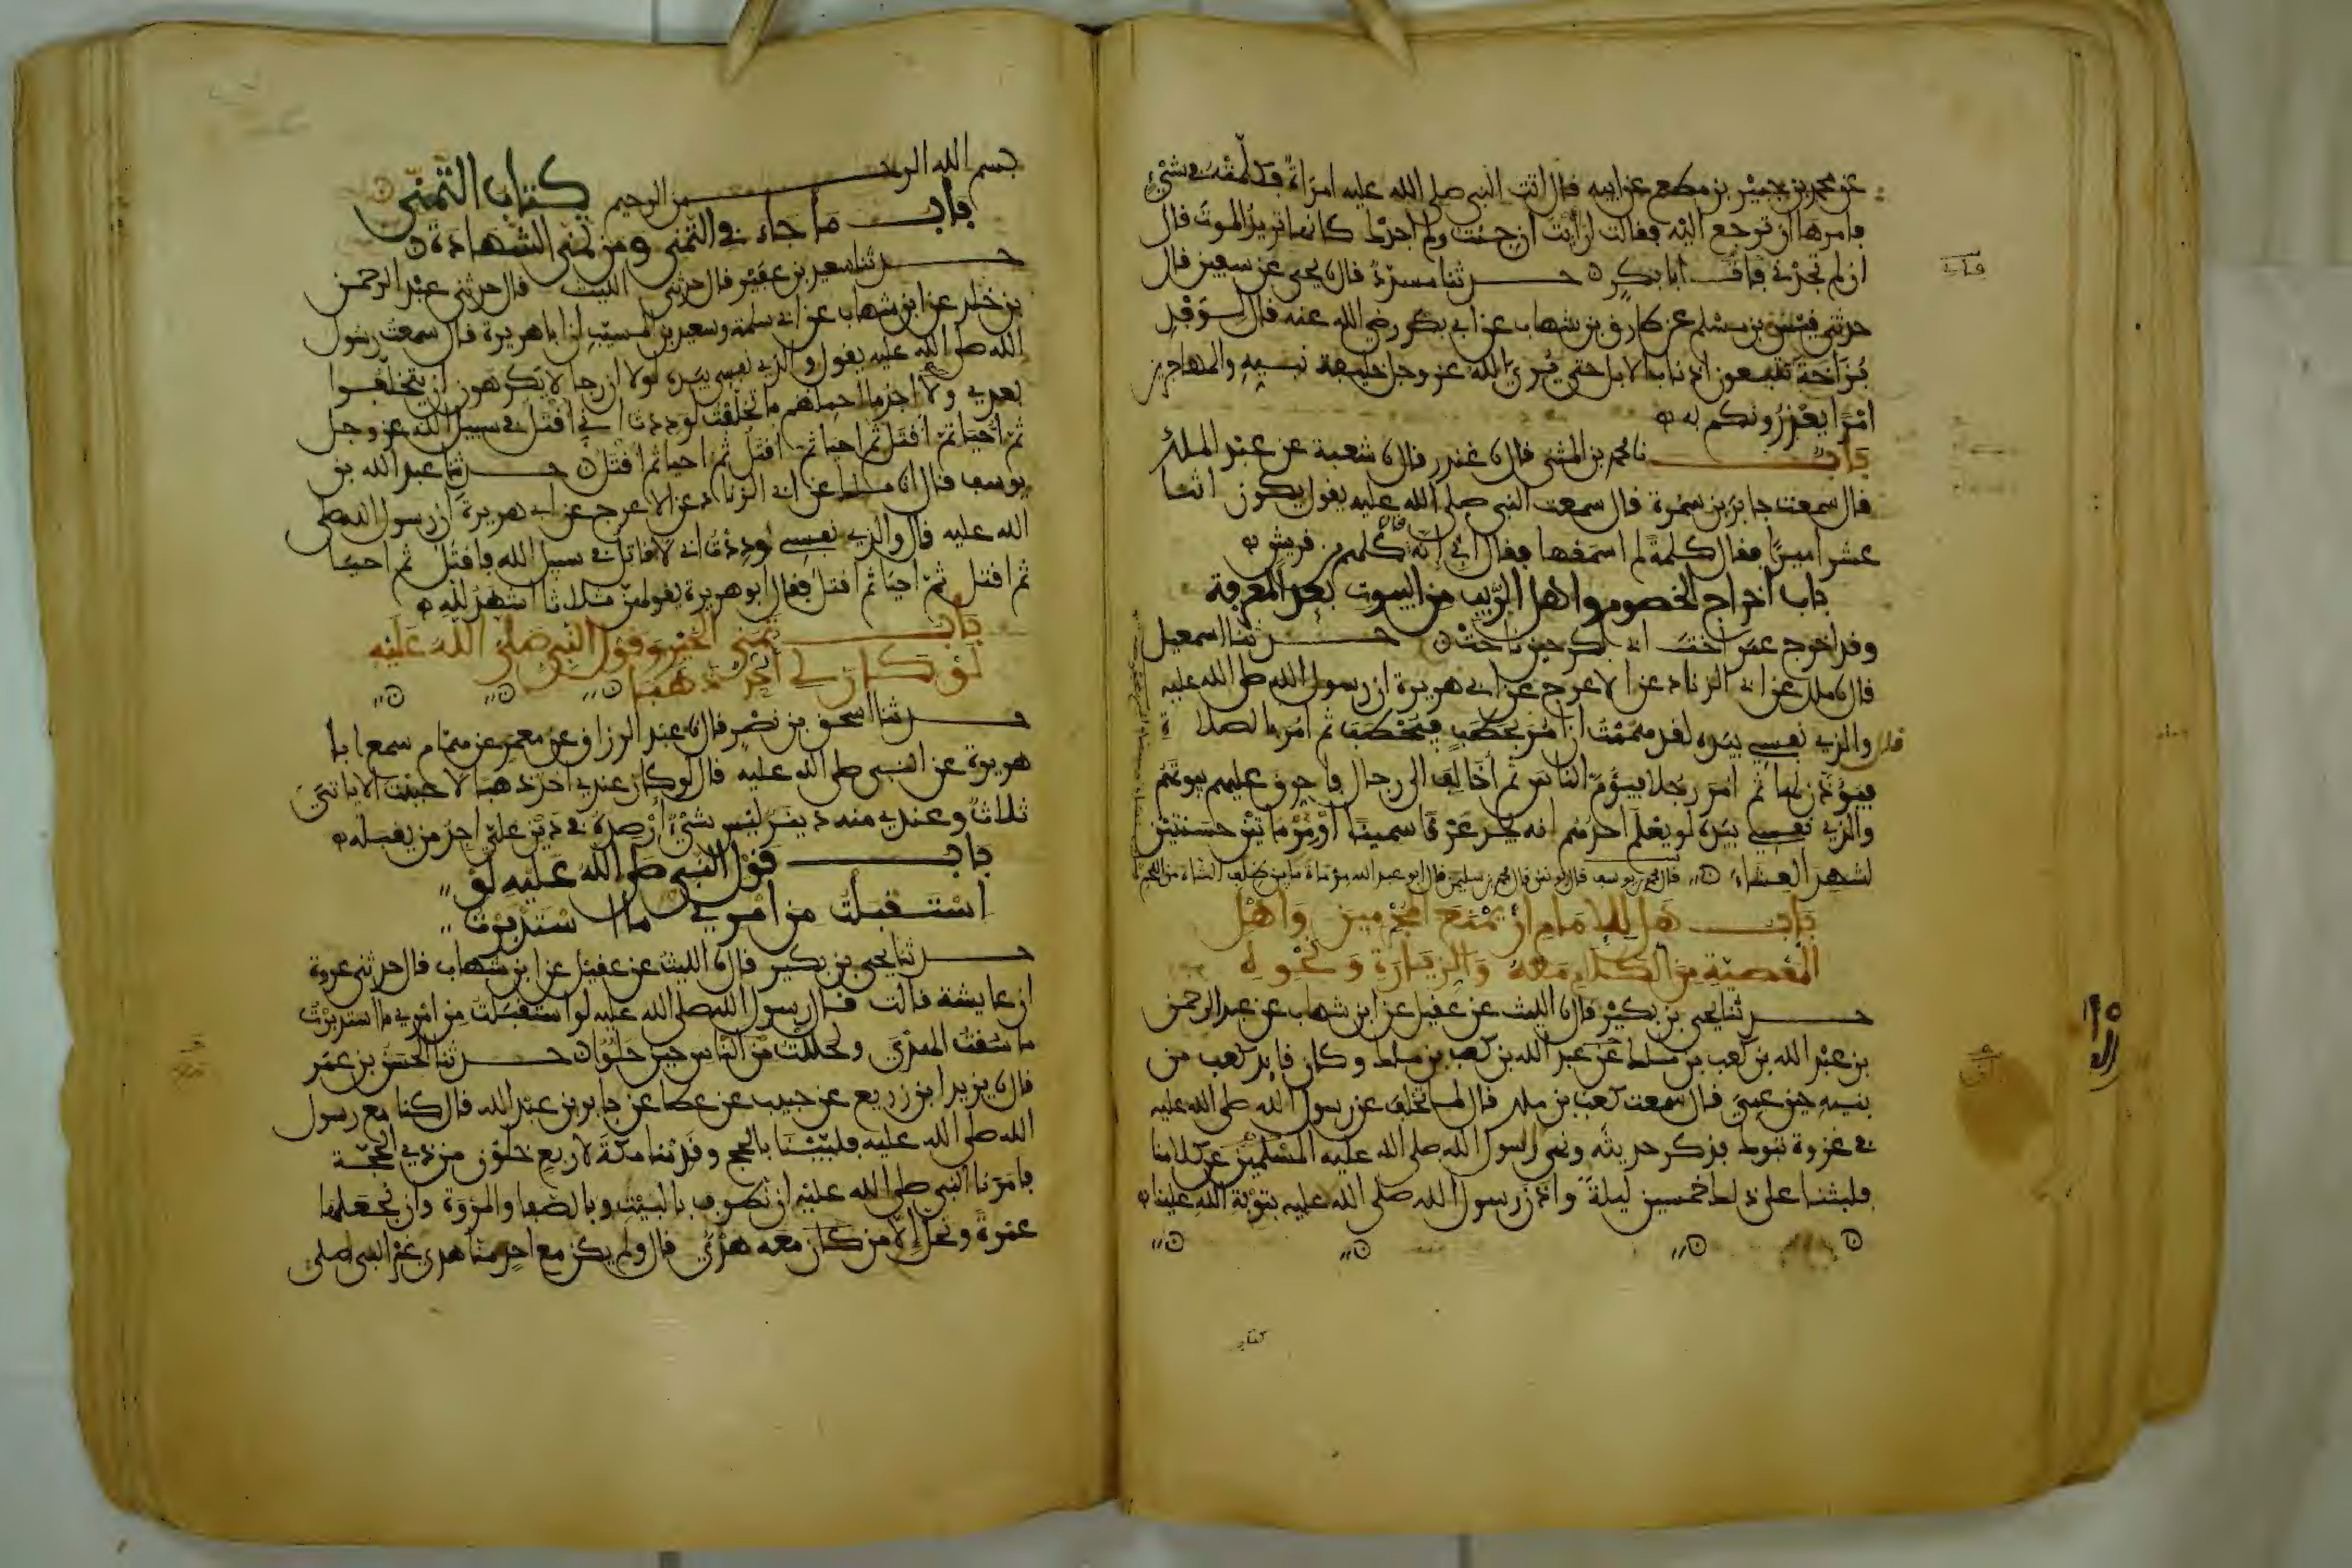 عن محمد بن جبير بن مطعم عن ابيه قال اتت النبي صلى الله عليه امراة فكلمته في شيء
فامرها ان ترجع اليه فقالت ارأيت ان جئت ولم اجدك كانها تريد الموت قال
ان لم تجدني فات ابا بكر حدثنا مسدد قال نا يحيى عن سفين قال
حدثني قيس بن مسلم عن طارق بن شهاب عن ابي بكر رضي الله عنه قال لوفد
بزاخة تتبعون اذناب الابل حتى يري الله عز وجل خليفة نبيه والمهاجرين
امرا يعذرونكم به
باب نا محمد بن المثنى قال نا غندر قال نا شعبة عن عبد الملك
قال سمعت جابر بن سمرة قال سمعت النبي صلى الله عليه يقول يكون اثنا
عشر اميرا فقال كلمة لم اسمعها فقال ابي انه قال كلهم من قريش
باب اخراج الخصوم واهل الريب من البيوت بعد المعرفة
وقد اخرج عمر اخت ابي بكر حين ناحت حدثنا اسمعيل
قال نا ملك عن ابي الزناد عن الاعرج عن ابي هريرة ان رسول الله صلى الله عليه
قال والذي نفسي بيده لقد هممت ان امر بحطب فيحتطب ثم امر بالصلاة
فيؤذن لها ثم امر رجلا فيؤم الناس ثم اخالف الى رجال فاحرق عليهم بيوتهم
والذي نفسي بيده لو يعلم احدكم انه يجد عرقا سمينا او مرماتين حسنتين
لشهد العشاء قال محمد بن يوسف قال يونس قال محمد بن سليمن قال ابو عبد الله مرماة ما بين ظلف الشاة من اللحم
باب هل للامام ان يمنع المجرمين واهل
المعصية من الكلام معه والزيارة ونحوه
حدثنا يحيى بن بكير قال نا الليث عن عقيل عن ابن شهاب عن عبد الرحمن
بن عبد الله بن كعب بن ملك عن عبد الله بن كعب بن ملك وكان قايد كعب من
بنيه حين عمي قال سمعت كعب بن ملك قال لما تخلف عن رسول الله صلى الله عليه
في غزوة تبوك فذكر حديثه ونهى رسول الله صلى الله عليه المسلمين عن كلامنا
فلبثنا على ذلك خمسين ليلة واذن رسول الله صلى الله عليه بتوبة الله علينا
كتاب
بسم الله الرحمن الرحيم كتاب التمني
باب ما جاء في التمني ومن تمنى الشهادة
حدثنا سعيد بن عفير قال حدثني الليث قال حدثني عبد الرحمن
بن خلد عن ابن شهاب عن ابي سلمة وسعيد بن المسيب ان ابا هريرة قال سمعت رسول
الله صلى الله عليه يقول والذي نفسي بيده لولا ان رجالا يكرهون ان يتخلفوا
بعدي ولا اجد ما احملهم ما تخلفت لوددت اني اقتل في سبيل الله عز وجل
ثم احيا ثم اقتل ثم احيا ثم اقتل ثم احيا ثم اقتل حدثنا عبد الله بن
يوسف قال انا ملك عن ابي الزناد عن الاعرج عن ابي هريرة ان رسول الله صلى
الله عليه قال والذي نفسي لوددت اني لاقاتل في سبيل الله فاقتل ثم احيا
ثم اقتل ثم احيا ثم اقتل فقال ابو هريرة يقولهن ثلاثا اشهد لله
باب تمني الخير وقول النبي صلى الله عليه
لو كان لي احد ذهبا
حدثنا اسحق بن نصر قال نا عبد الرزاق عن معمر عن همام سمع ابا
هريرة عن النبي صلى الله عليه قال لو كان عندي احد ذهبا لاحببت الا ياتي
ثلاث وعندي منه دينر ليس شيء ارصده في دين علي اجد من يقبله
باب قول النبي صلى الله عليه لو
استقبلت من امري ما استدبرت
حدثنا يحيى بن بكير قال نا الليث عن عقيل عن ابن شهاب قال حدثني عروة
ان عايشة قالت قال رسول الله صلى الله عليه لو استقبلت من امري ما استدبرت
ما سقت الهدي ولحللت مع الناس حين حلوا حدثنا الحسن بن عمر
قال نا يزيد ابن زريع عن حبيب عن عطا عن جابر بن عبد الله قال كنا مع رسول
الله صلى الله عليه فلبينا بالحج وقدمنا مكة لاربع خلون من ذي الحجة
فامرنا النبي صلى الله عليه ان نطوف بالبيت وبالصفا والمروة وان نجعلها
عمرة ونحل الا من كان معه هدي قال ولم يكن مع احد منا هدي غير النبي صلى